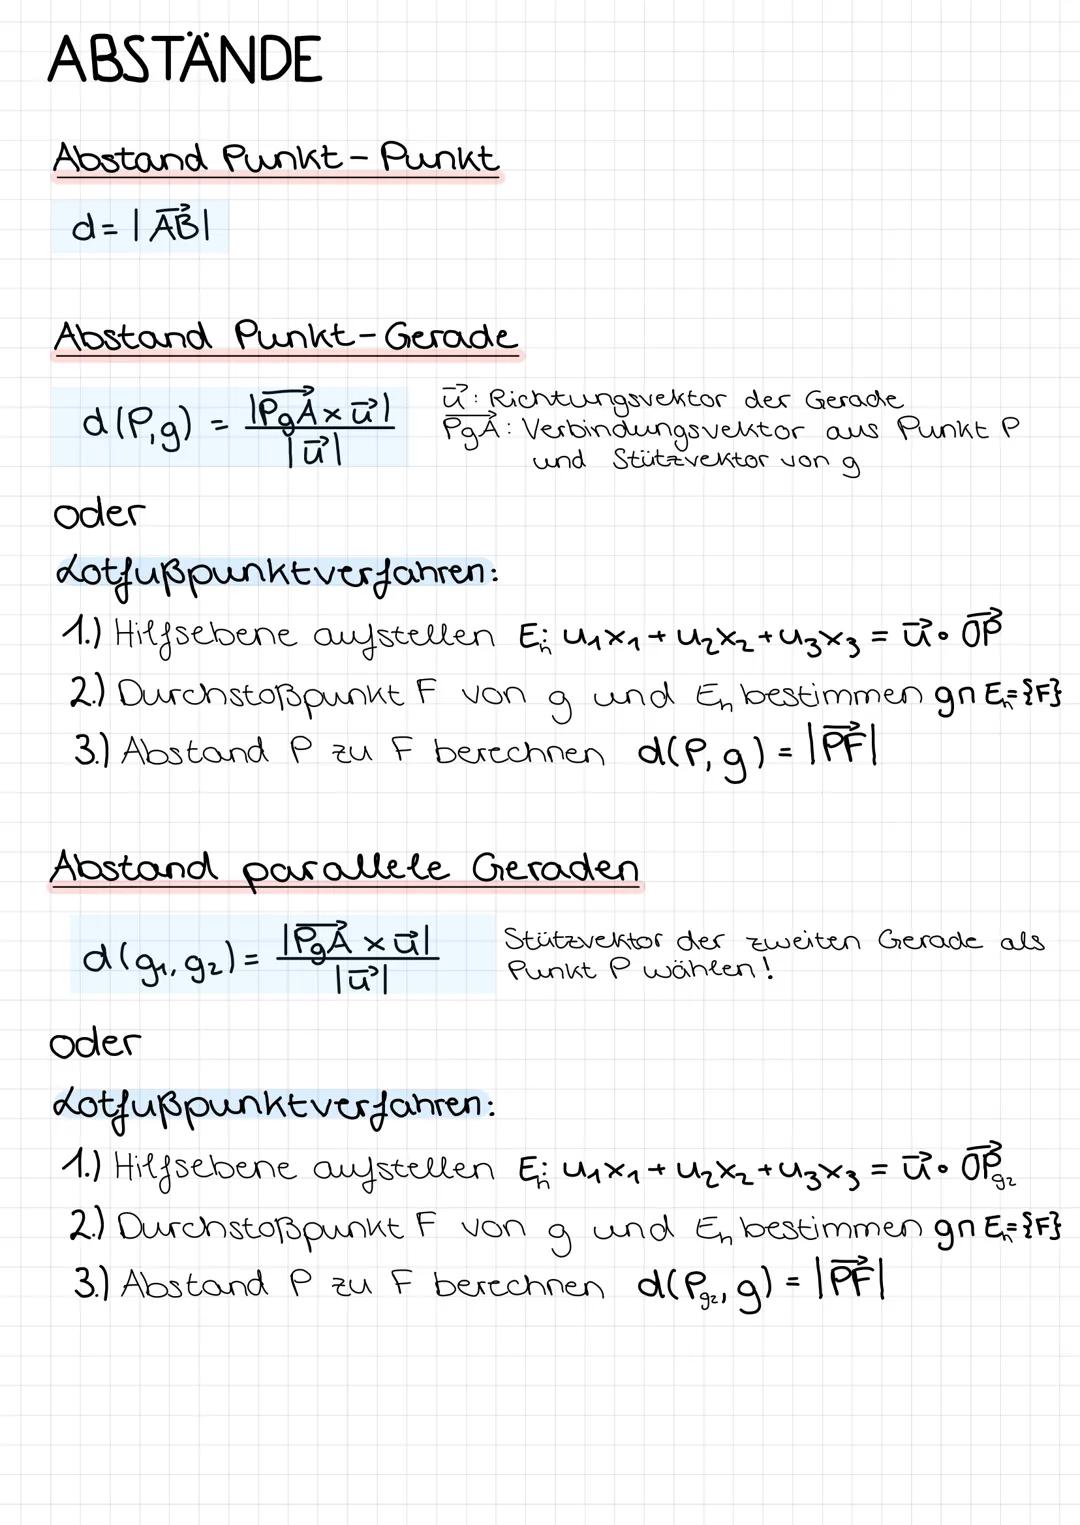 ABSTÄNDE
Abstand Punkt - Punkt
d = |AB⃗|
Abstand Punkt - Gerade
d(P,g) = |PgA⃗ × u⃗| / |u⃗|
u⃗: Richtungsvektor der Gerade
PgA⃗: Verbindungsvektor aus Punkt P
und Stützvektor von g
oder
Lotfußpunktverfahren:
1.) Hilfsebene aufstellen Eₕ: u₁x₁ + u₂x₂ + u₃x₃ = u⃗ ∘ OP⃗
2.) Durchstoßpunkt F von g und Eₕ bestimmen g∩Eₕ={F}
3.) Abstand P zu F berechnen d(P, g) = |PF⃗|
Abstand parallele Geraden
d(g₁, g₂) = |PgA⃗ × u⃗| / |u⃗|
Stützvektor der zweiten Gerade als
Punkt P wählen!
oder
Lotfußpunktverfahren:
1.) Hilfsebene aufstellen Eₕ: u₁x₁ + u₂x₂ + u₃x₃ = u⃗ ∘ OP⃗g₂
2.) Durchstoßpunkt F von g und Eₕ bestimmen g∩Eₕ={F}
3.) Abstand P zu F berechnen d(Pg₂, g) = |PF⃗|